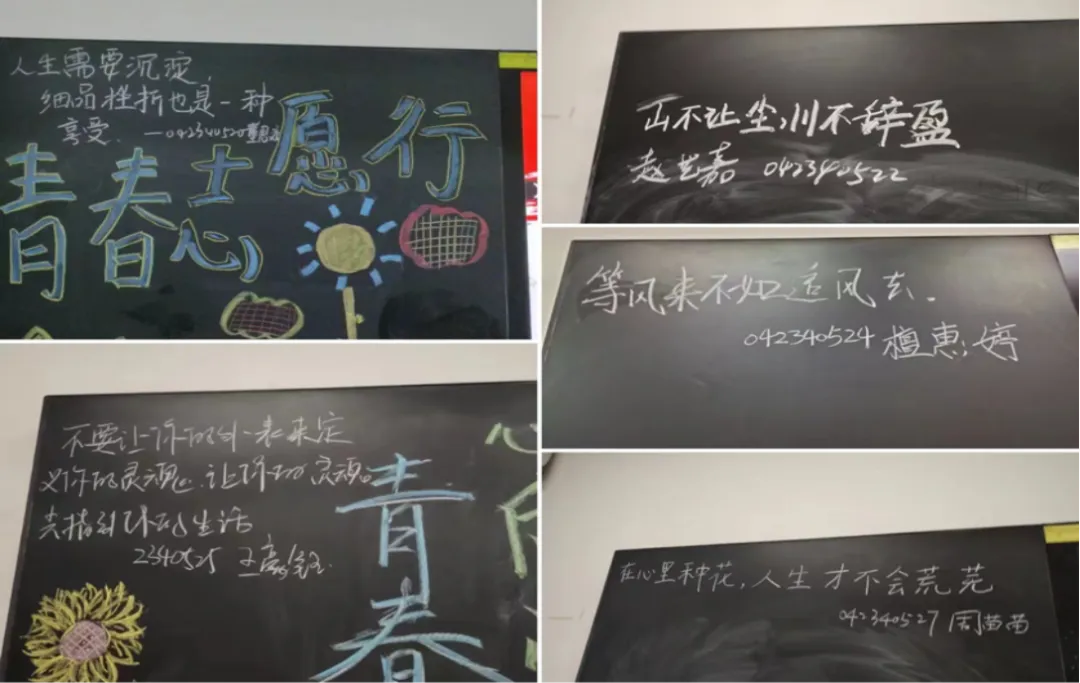 人生需要沉淀,
细品挫折也是一种
享受. —042340520
青春志愿行
不要让你的外表来定
义你的灵魂.让你的灵魂
去指引你的生活
2340525 王
青春
山不让尘,川不辞盈
赵艺嘉 042340522
等风来不如追风去.
042340524 檀惠婷
在心里种花,人生才不会荒芜
042340527 周苗苗